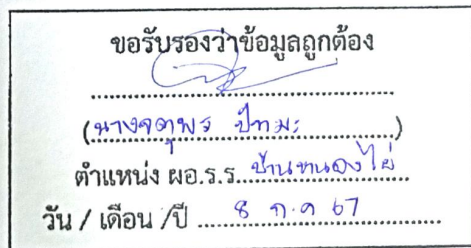 ขอรับรองว่าข้อมูลถูกต้อง
(นางจตุพร ปัทมะ)
ตำแหน่ง ผอ.ร.ร. บ้านหนองไผ่
วัน / เดือน /ปี 8 ก.ค 67